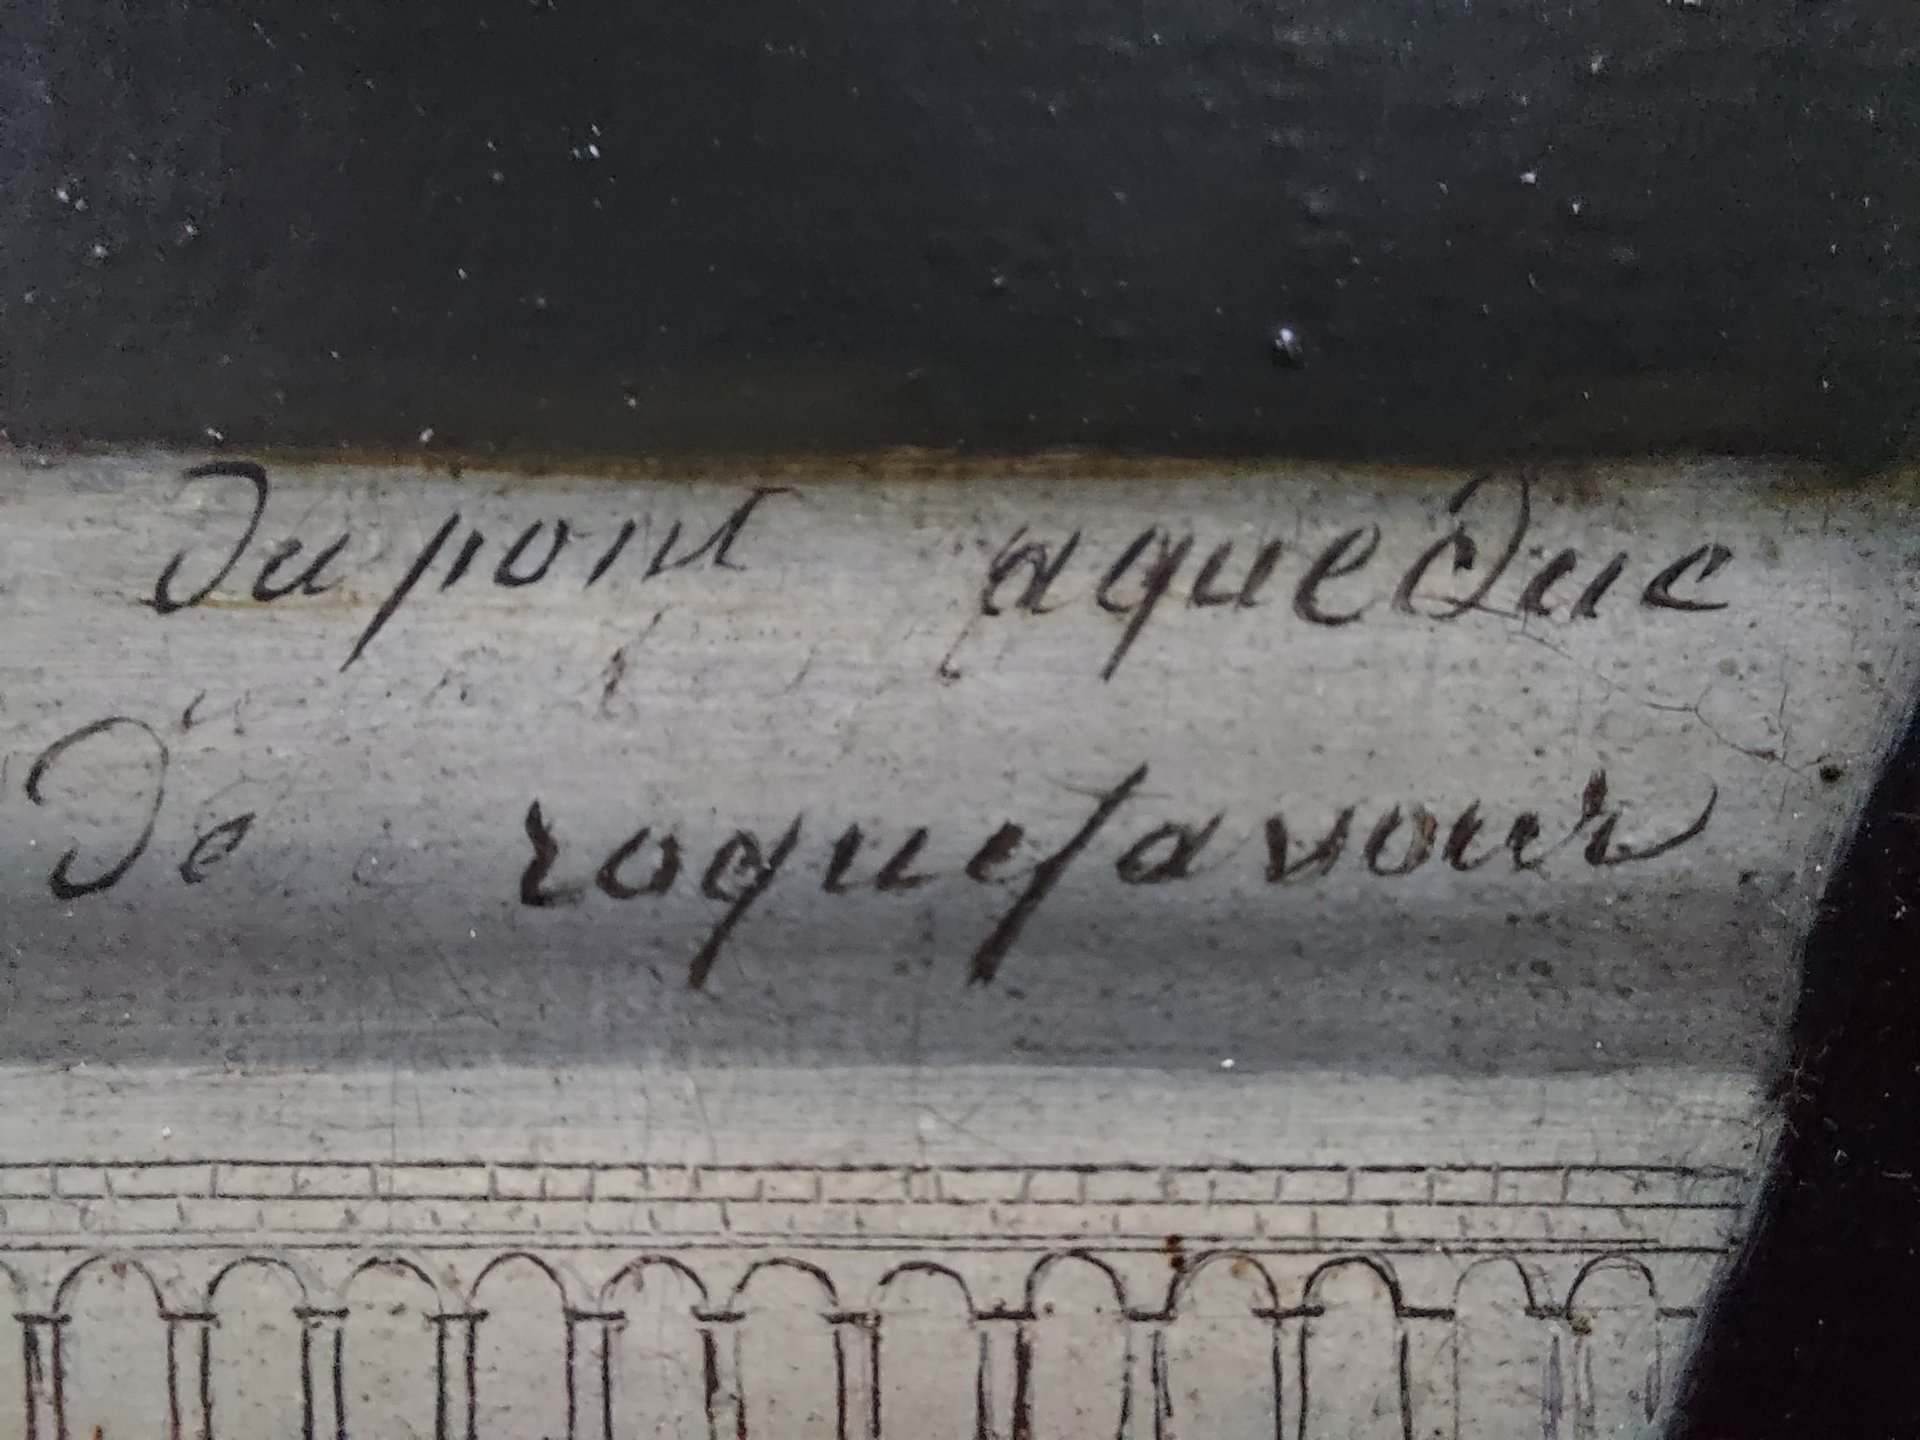 Du pont aqueduc
De roquefavour